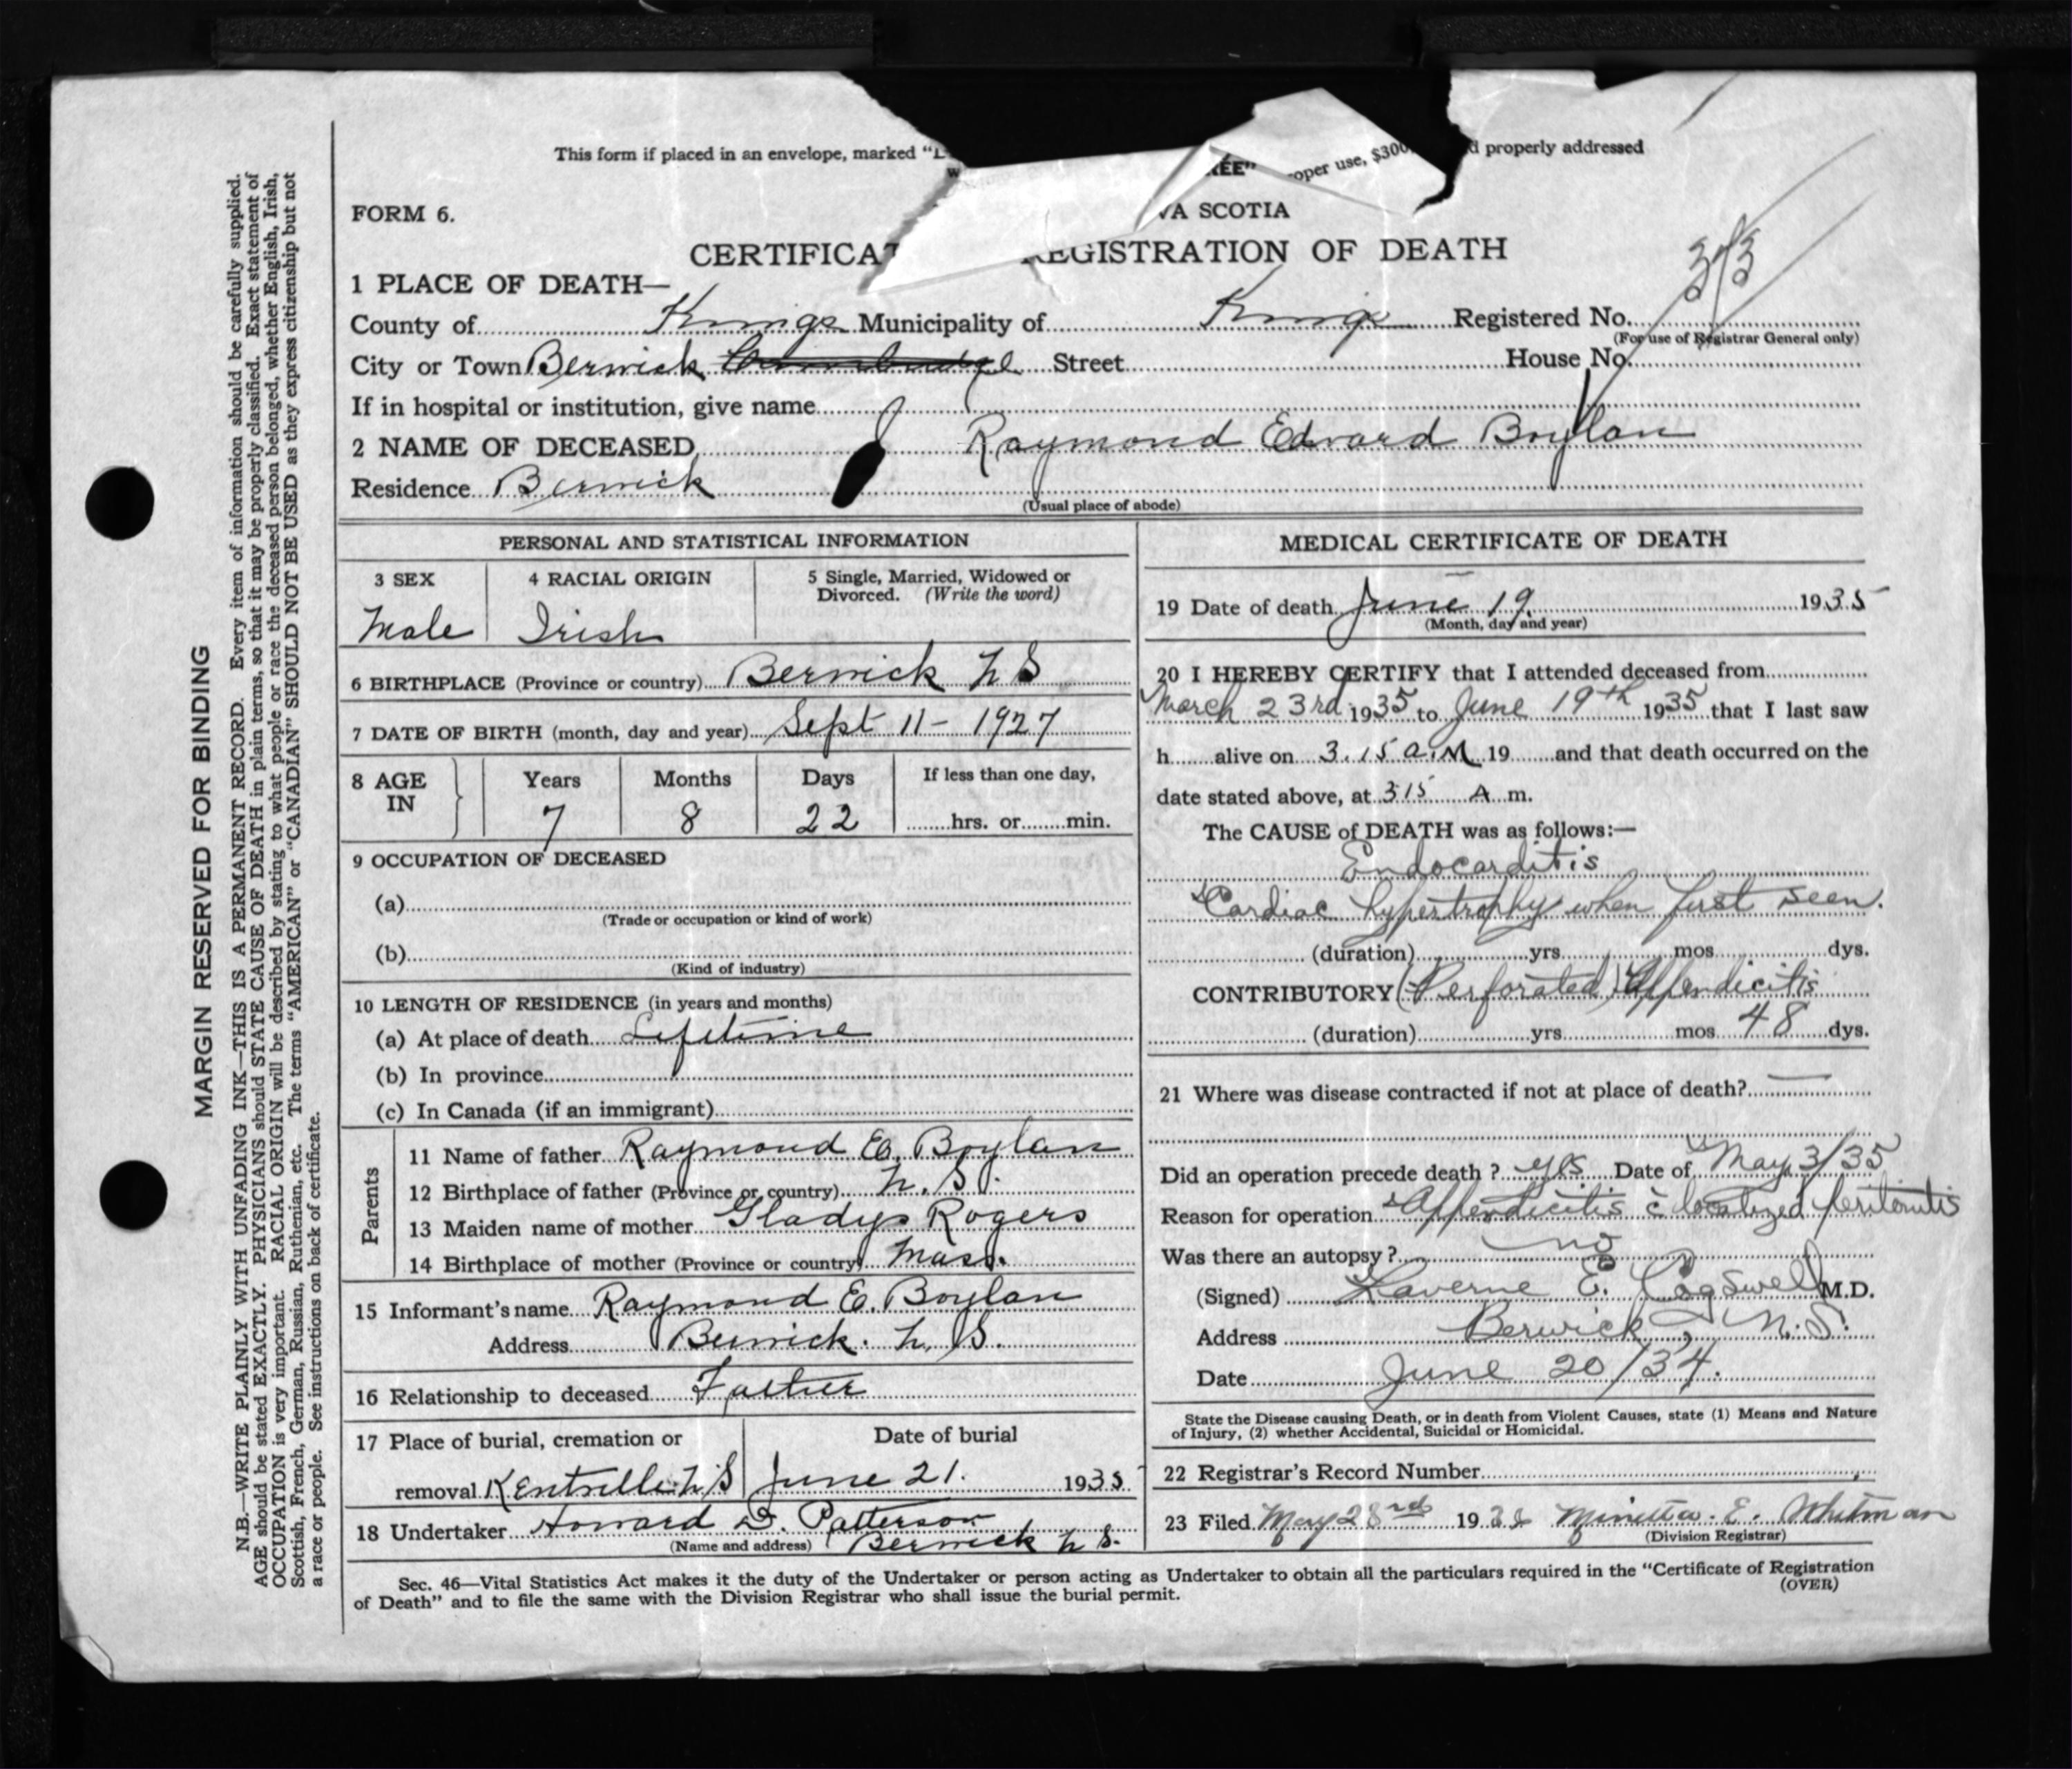 This form if placed in an envelope, marked "L
d properly addressed
w
REE"
oper use, $300
FORM 6.
VA SCOTIA
CERTIFICAT REGISTRATION OF DEATH
1 PLACE OF DEATH—
County of Kings Municipality of Kings Registered No. 373
(For use of Registrar General only)
City or Town Berwick Street House No.
If in hospital or institution, give name
2 NAME OF DECEASED Raymond Edward Boylan
Residence Berwick
(Usual place of abode)
PERSONAL AND STATISTICAL INFORMATION
3 SEX
Male
4 RACIAL ORIGIN
Irish
5 Single, Married, Widowed or
Divorced. (Write the word)
6 BIRTHPLACE (Province or country) Berwick N S
7 DATE OF BIRTH (month, day and year) Sept 11 - 1927
8 AGE IN
Years Months Days If less than one day,
7 8 22 hrs. or min.
9 OCCUPATION OF DECEASED
(a)
(Trade or occupation or kind of work)
(b)
(Kind of industry)
10 LENGTH OF RESIDENCE (in years and months)
(a) At place of death Lifetime
(b) In province
(c) In Canada (if an immigrant)
Parents
11 Name of father Raymond E. Boylan
12 Birthplace of father (Province or country) N. S.
13 Maiden name of mother Gladys Rogers
14 Birthplace of mother (Province or country) Mass.
15 Informant's name Raymond E. Boylan
Address Berwick. N. S.
16 Relationship to deceased Father
17 Place of burial, cremation or
removal Kentville N S
Date of burial
June 21. 1935
18 Undertaker Howard D. Patterson
(Name and address) Berwick N S.
MEDICAL CERTIFICATE OF DEATH
19 Date of death June 19 1935
(Month, day and year)
20 I HEREBY CERTIFY that I attended deceased from
March 23rd 1935 to June 19th 1935 that I last saw
h alive on 3.15 a.M 19 and that death occurred on the
date stated above, at 315 A m.
The CAUSE of DEATH was as follows:—
Endocarditis
Cardiac hypertrophy when first seen.
(duration) yrs. mos. dys.
CONTRIBUTORY (Perforated) Appendicitis
(duration) yrs. mos. 48 dys.
21 Where was disease contracted if not at place of death? —
Did an operation precede death? yes Date of May 3/35
Reason for operation Appendicitis c̄ localized peritonitis
Was there an autopsy? no
(Signed) Laverne E. Cogswell M.D.
Address Berwick, N.S.
Date June 20/34.
State the Disease causing Death, or in death from Violent Causes, state (1) Means and Nature
of Injury, (2) whether Accidental, Suicidal or Homicidal.
22 Registrar's Record Number
23 Filed May 28rd 1935 E. Whitman
(Division Registrar)
Sec. 46—Vital Statistics Act makes it the duty of the Undertaker or person acting as Undertaker to obtain all the particulars required in the "Certificate of Registration
of Death" and to file the same with the Division Registrar who shall issue the burial permit.
(OVER)
MARGIN RESERVED FOR BINDING
N.B.—WRITE PLAINLY WITH UNFADING INK—THIS IS A PERMANENT RECORD. Every item of information should be carefully supplied.
AGE should be stated EXACTLY. PHYSICIANS should STATE CAUSE OF DEATH in plain terms, so that it may be properly classified. Exact statement of
OCCUPATION is very important. RACIAL ORIGIN will be described by stating to what people or race the deceased person belonged, whether English, Irish,
Scottish, French, German, Russian, Ruthenian, etc. The terms "AMERICAN" or "CANADIAN" SHOULD NOT BE USED as they express citizenship but not
a race or people. See instructions on back of certificate.